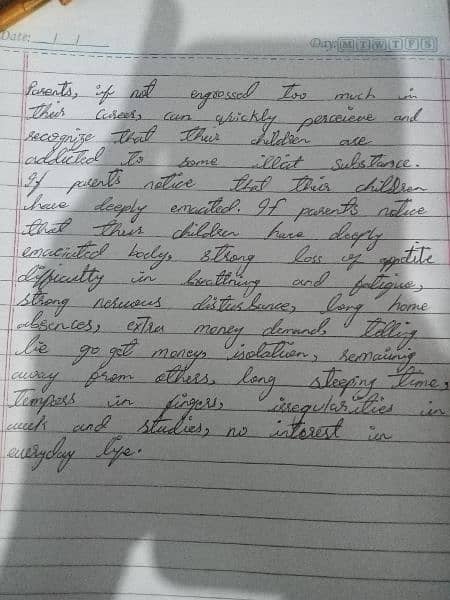 Date: / /
Day: M T W T F S
Parents, if not engrossed too much in
their career, can quickly perceieve and
recognize that their children are
addicted to some illicit substance.
If parents notice that their children
have deeply emacited. If parents notice
that their children have deeply
emaciated body, strong loss of appetite
difficulty in breathing and fatigue,
strong nervous disturbance, long home
absences, extra money demand, telling
lie go get money, isolation, remaining
away from others, long sleeping time,
Tempers in fingers, irregularities in
work and studies, no interest in
everyday life.